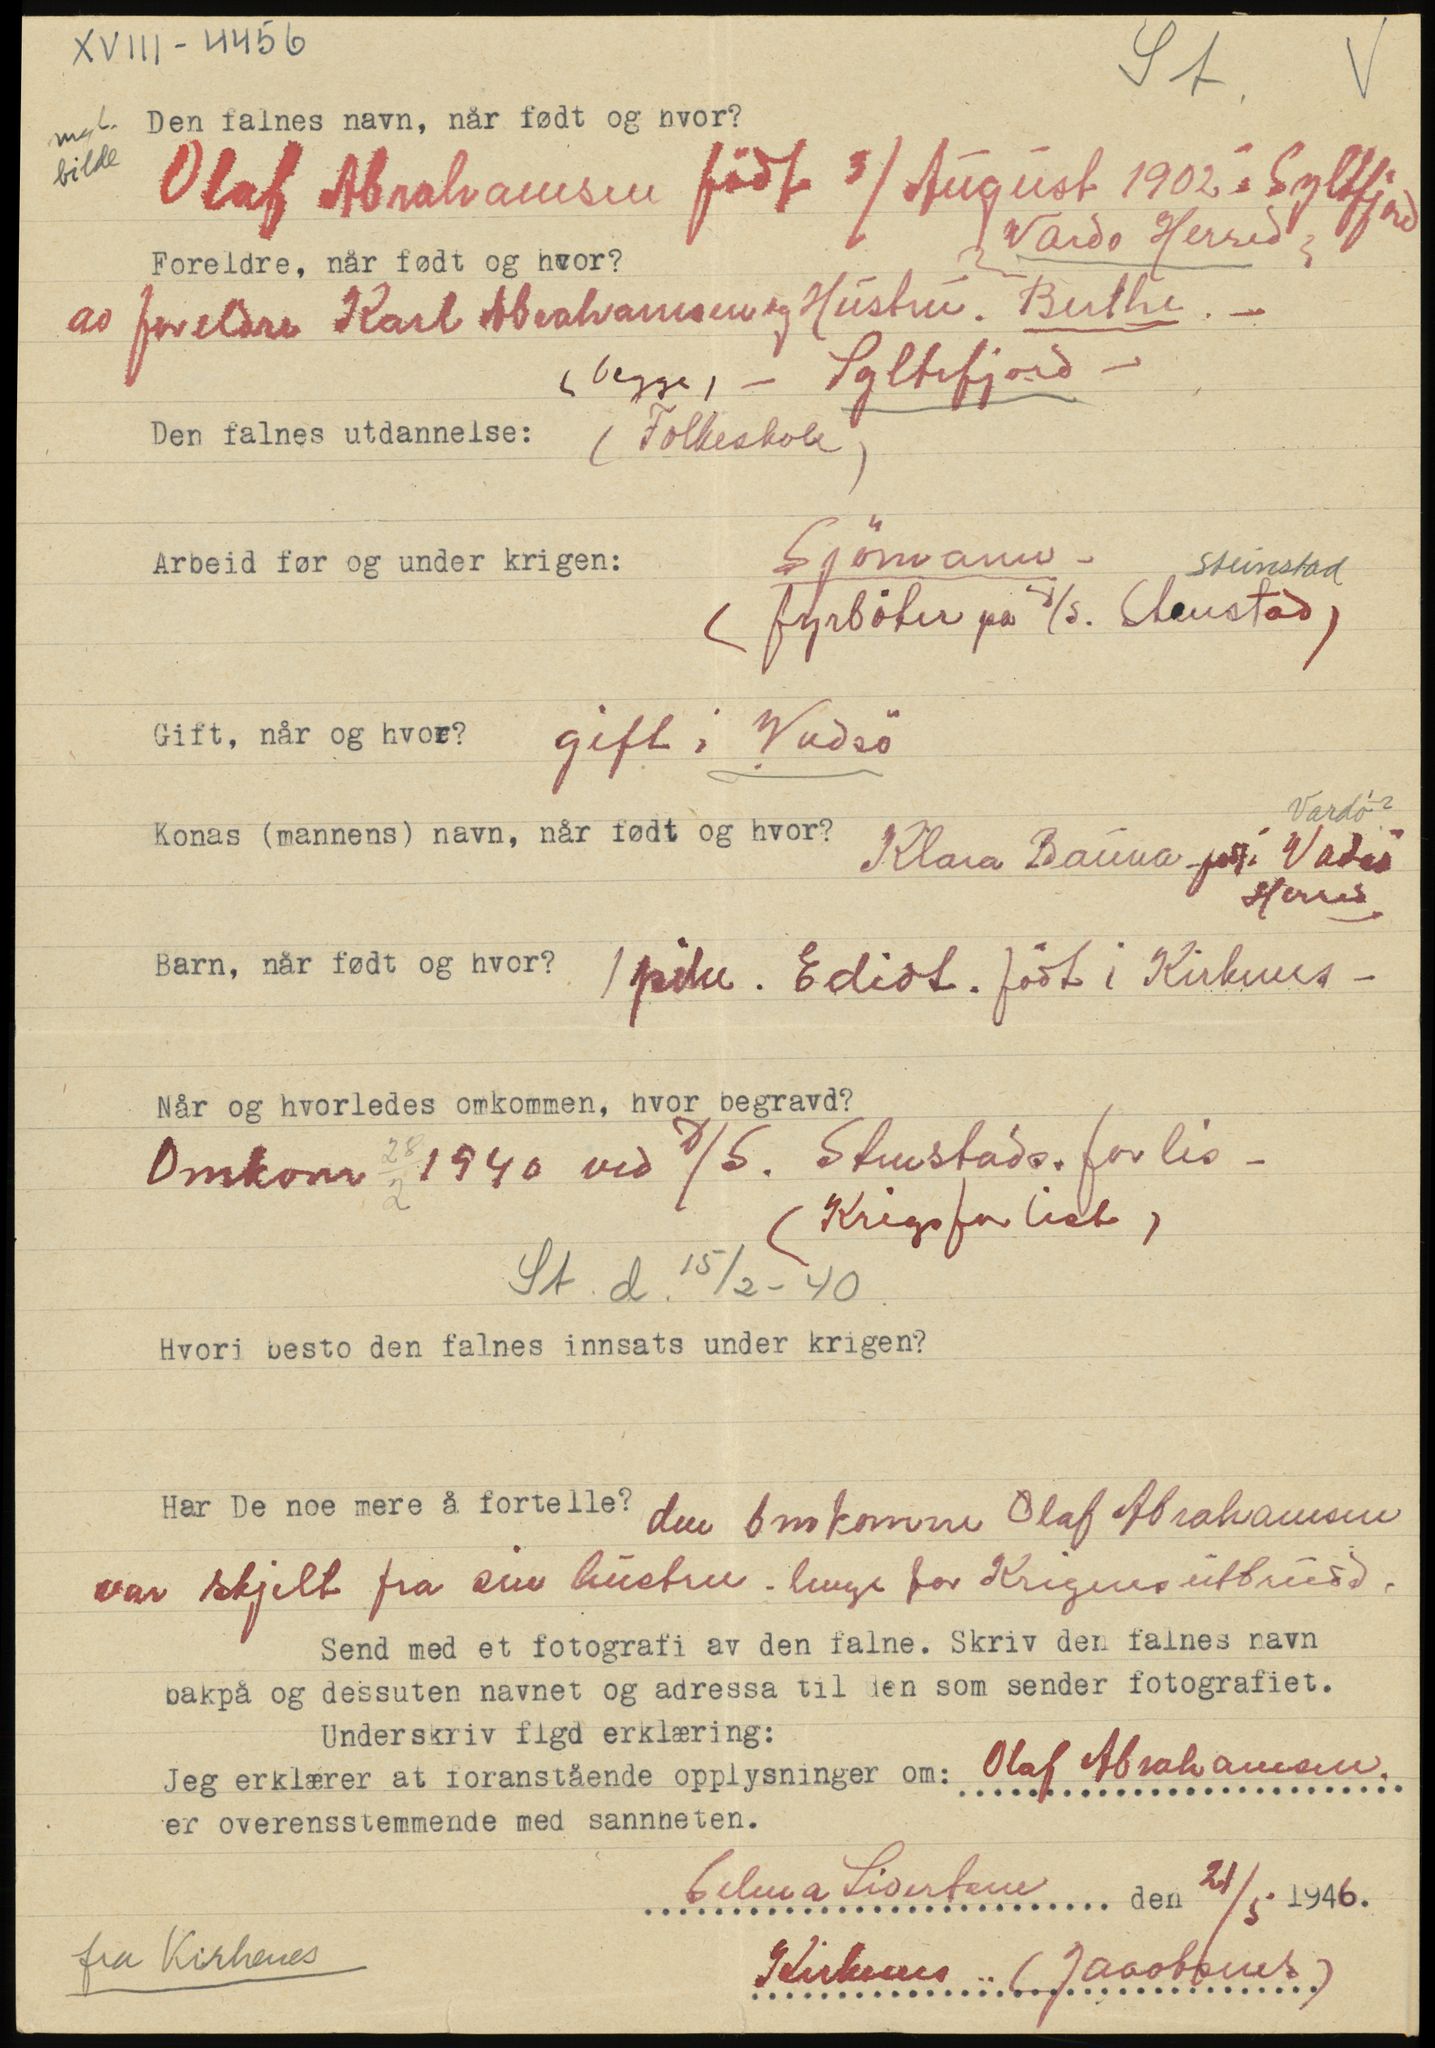 XVIII - 4456
St. V
Den falnes navn, når født og hvor?
mgl. bilde
Olaf Abrahamsen født 3/ August 1902 i Syltfjord
Vardö Herred
Foreldre, når født og hvor?
av foreldre Karl Abrahamsen og Hustru. Berthe. -
(begge) - Syltefjord -
Den falnes utdannelse: (Folkeskole)
Arbeid før og under krigen: Sjömann -
Steinstad
(fyrböter på D/S. Stenstad)
Gift, når og hvor? gift i Vadsö
Vardö?
Konas (mannens) navn, når født og hvor? Klara Bauna i Vadsö
Herred
Barn, når født og hvor? 1 pike. Edidt. födt i Kirkenes -
Når og hvorledes omkommen, hvor begravd?
Omkom 28/2 1940 ved D/S. Stenstads. forlis -
(Krigsforlist)
St. d. 15/2 - 40
Hvori besto den falnes innsats under krigen?
Har De noe mere å fortelle? den omkomne Olaf Abrahamsen
var skjelt fra sin hustru - lenge for Krigens utbrudd.
Send med et fotografi av den falne. Skriv den falnes navn
bakpå og dessuten navnet og adressa til den som sender fotografiet.
Underskriv flgd erklæring:
Jeg erklærer at foranstående opplysninger om: Olaf Abrahamsen.
er overensstemmende med sannheten.
Selma Sivertsen den 21/5 1946.
fra Kirkenes
Kirkenes .. (Jacobsnes)